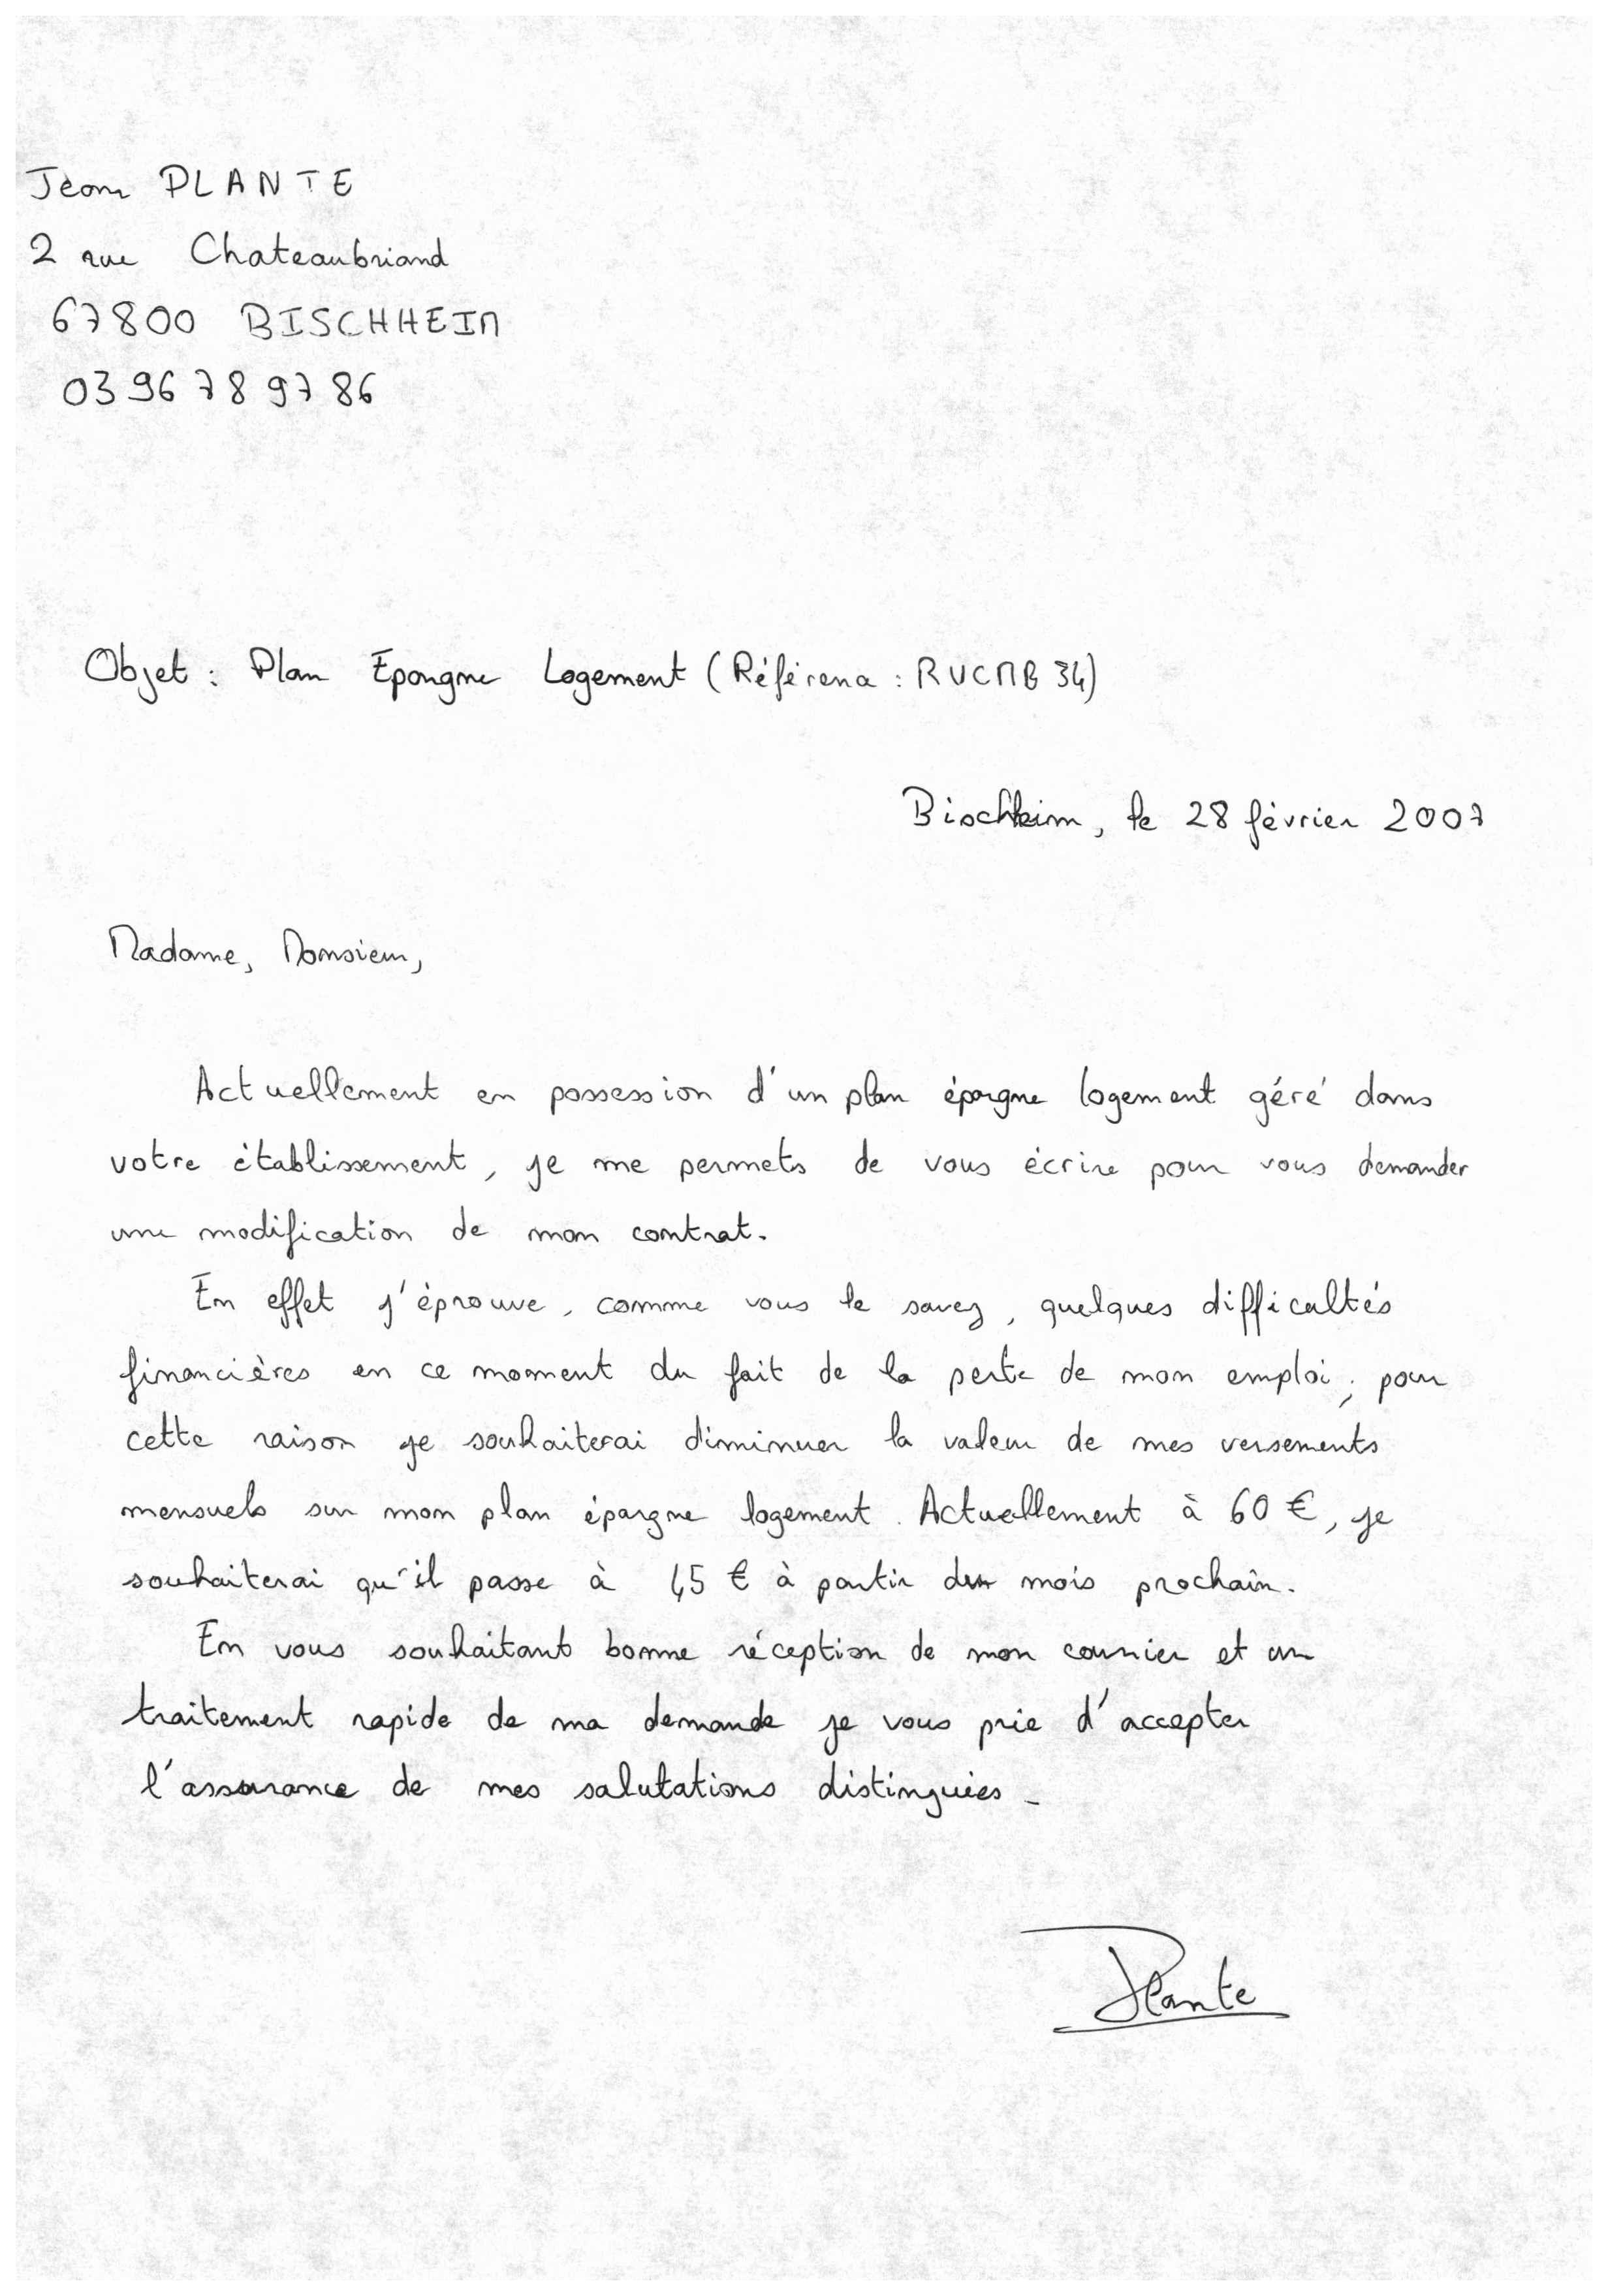 Jean PLANTE
2 rue Chateaubriand
67800 BISCHHEIM
03 96 78 97 86
Objet : Plan Epargne Logement (Référence : RVCMB 34)
Bischheim, le 28 février 2007
Madame, Monsieur,
Actuellement en possession d'un plan épargne logement géré dans
votre établissement, je me permets de vous écrire pour vous demander
une modification de mon contrat.
En effet j'éprouve, comme vous le savez, quelques difficultés
financières en ce moment du fait de la perte de mon emploi ; pour
cette raison je souhaiterai diminuer la valeur de mes versements
mensuels sur mon plan épargne logement. Actuellement à 60 €, je
souhaiterai qu'il passe à 45 € à partir du mois prochain.
En vous souhaitant bonne réception de mon courrier et un
traitement rapide de ma demande je vous prie d'accepter
l'assurance de mes salutations distinguées.
Plante